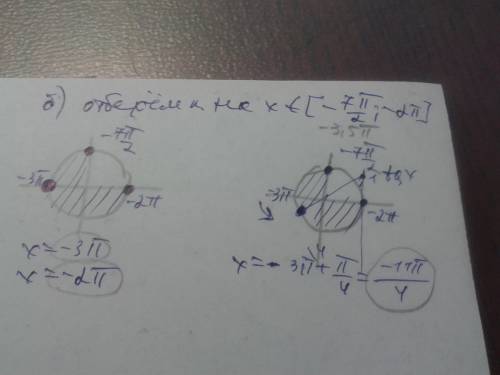 б) отберём на x ∈ [-7π/2; -2π]
-3,5π
-7π/2
-3π
-2π
x = -3π
x = -2π
-7π/2
1 tg x
-3π
-2π
x = -3π + π/4 = -11π/4